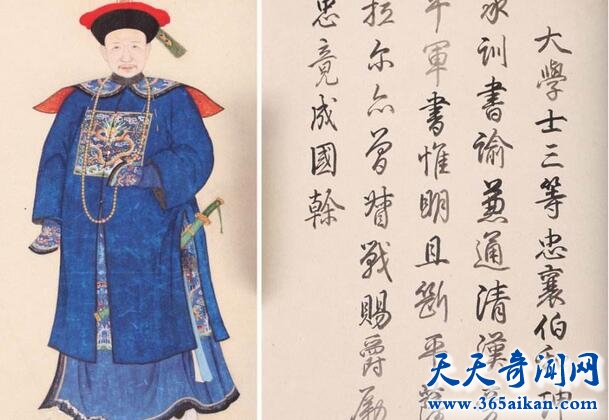 大學士三等忠襄伯和珅
承訓書諭兼通清漢旁
午軍書惟明且斷平薩
拉尔亦曾督戰賜爵勵
忠竟成國幹
天天奇闻网
www.365aikan.com